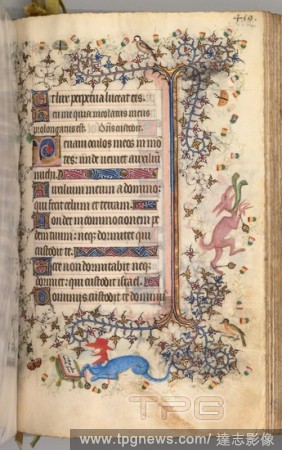 410.
et lux perpetua luceat eis.
me quia incolatus meus
prolongatus est. Dns custodit
Leuaui oculos meos in mo
tes: unde ueniet auxiliu
michi.
Auxilium meum a domino:
qui fecit celum et terram.
Non det in commocionem pe
dem tuum: neqz dormitet qui
custodit te.
Ecce non dormitabit neqz
dormiet: qui custodit israel.
Dominus custodit te domin
TPG
www.tpgnews.com/達志影像